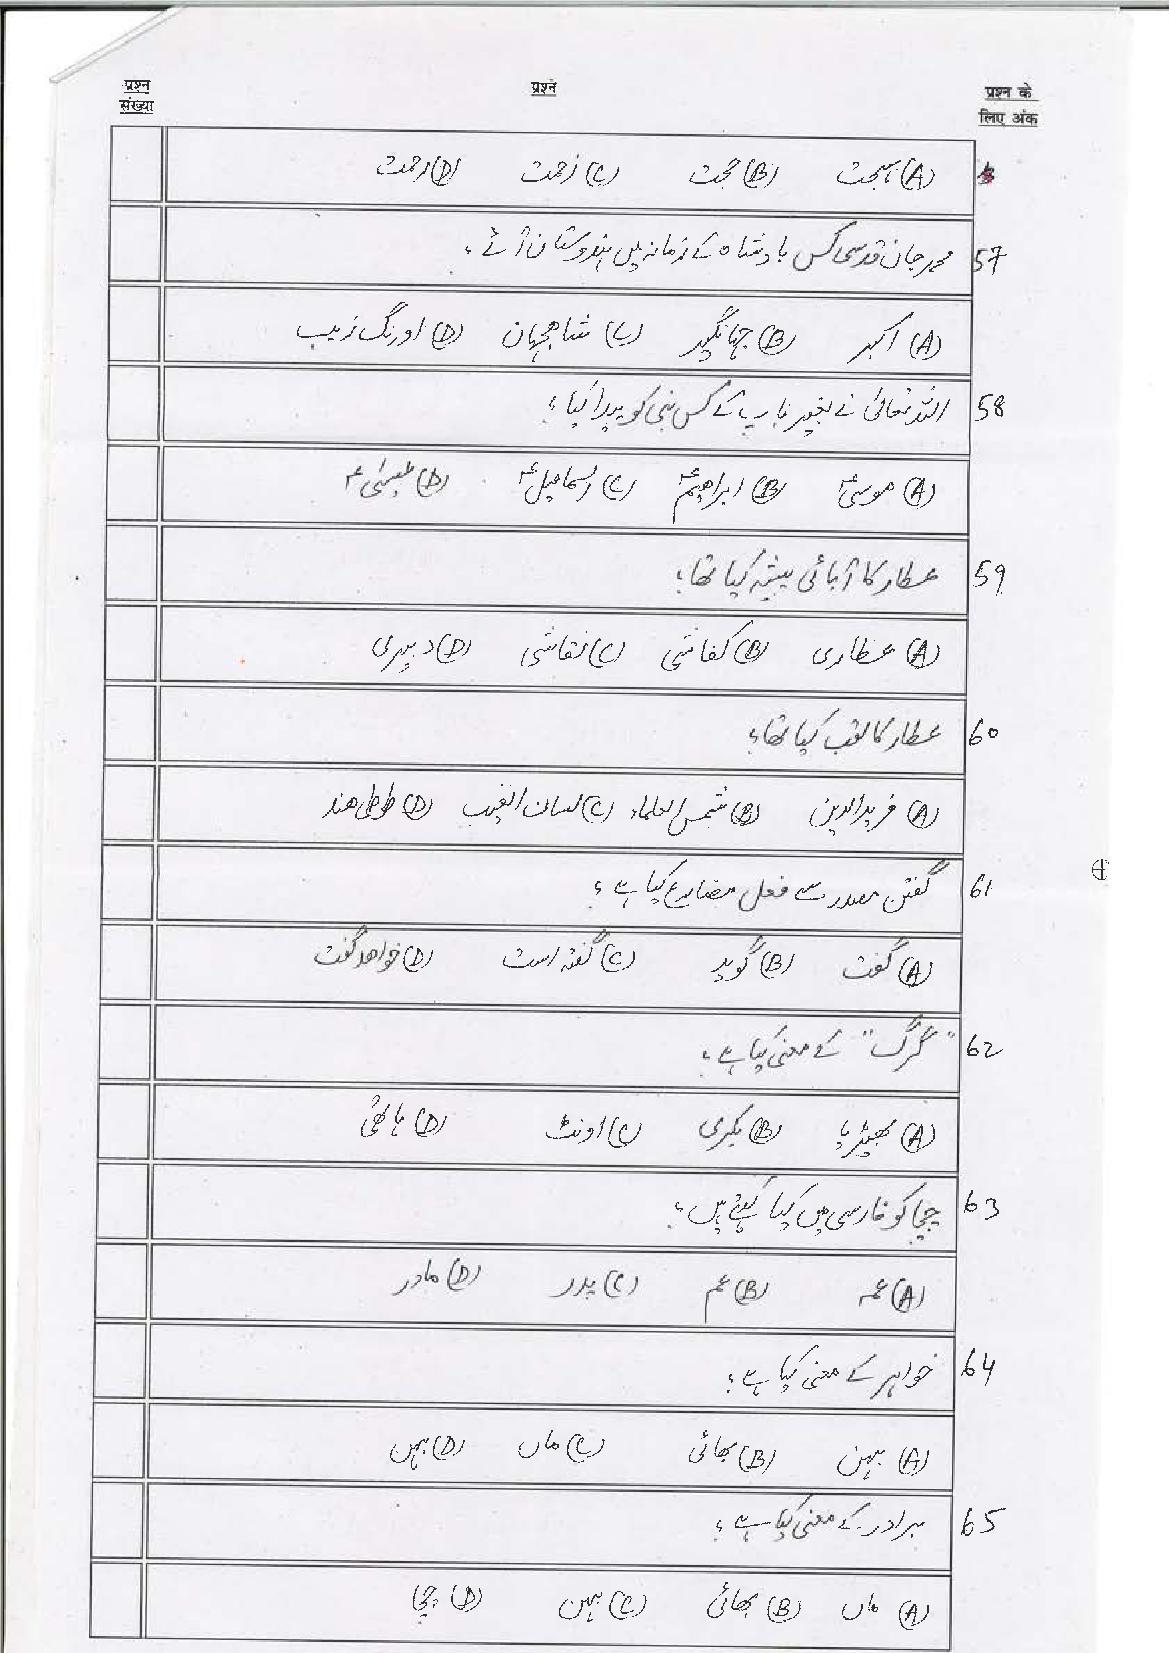 प्रश्न संख्या
प्रश्न
प्रश्न के लिए अंक
(A) (B) (C) زحمت (D) رحمت
57 محمد جان قدسی کس بادشاہ کے زمانہ میں ہندوستان آئے؟
(A) اکبر (B) جہانگیر (C) شاہجہان (D) اورنگ زیب
58 اللہ تعالیٰ نے بغیر باپ کے کس نبی کو پیدا کیا؟
(A) موسیٰؑ (B) ابراہیمؑ (C) اسماعیلؑ (D) عیسیٰؑ
59 عطار کا آبائی پیشہ کیا تھا؟
(A) عطاری (B) کفاشی (C) نقاشی (D) دبیری
60 عطار کا لقب کیا تھا؟
(A) فریدالدین (B) شمس العلماء (C) لسان الغیب (D) طوطی ھند
61 گفتن مصدر سے فعل مضارع کیا ہے؟
(A) گفت (B) گوید (C) گفتہ است (D) خواھد گفت
62 "گرگ" کے معنی کیا ہے؟
(A) بھیڑیا (B) بکری (C) اونٹ (D) ہاتھی
63 چچا کو فارسی میں کیا کہتے ہیں؟
(A) عمہ (B) عم (C) پدر (D) مادر
64 خواہر کے معنی کیا ہے؟
(A) بہن (B) بھائی (C) ماں (D)
65 برادر کے معنی کیا ہے؟
(A) ماں (B) بھائی (C) بہن (D) چچا